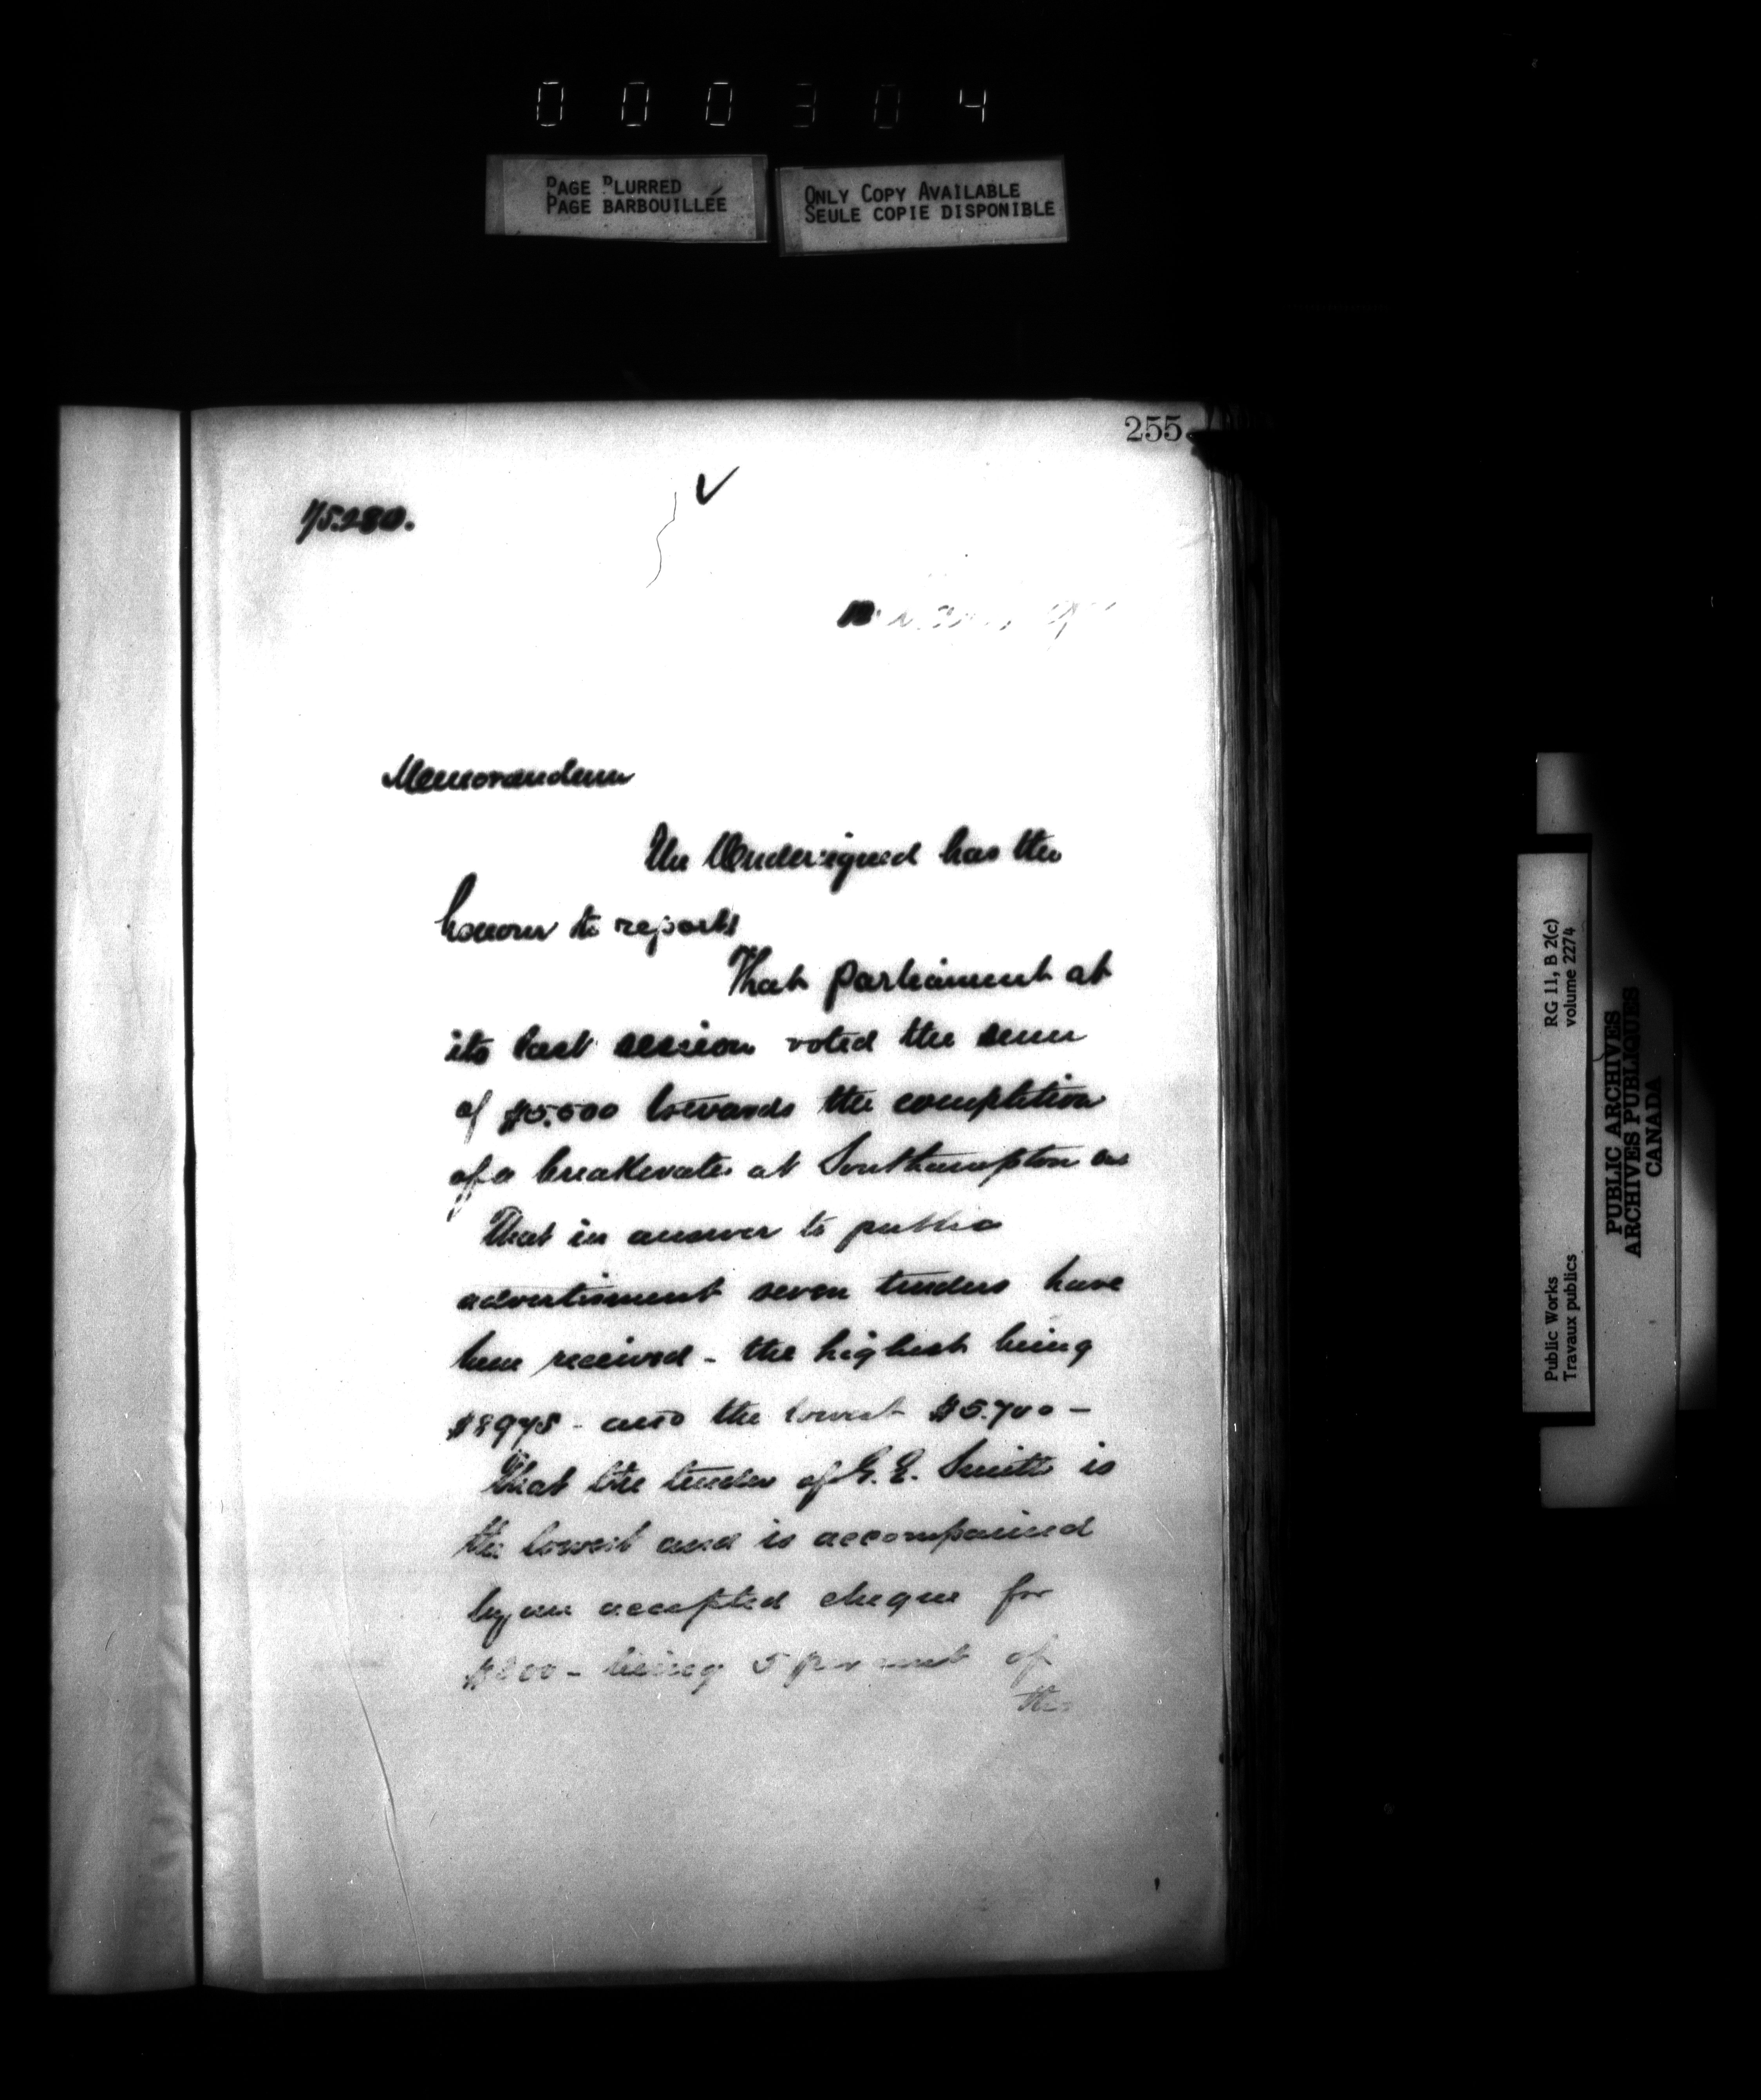 000304
PAGE BLURRED
PAGE BARBOUILLÉE
ONLY COPY AVAILABLE
SEULE COPIE DISPONIBLE
255
75280.
Memorandum
The Undersigned has the
honour to report
That Parliament at
its last session voted the sum
of $5.500 towards the completion
of a breakwater at Southampton
That in answer to public
advertisment seven tenders have
been received - the highest being
$8975 - and the lowest $5.700 -
That the tender of G. E. Smith is
the lowest and is accompanied
by an accepted cheque for
being 5 per cent of
the
Public Works
Travaux publics
RG 11, B 2(c)
volume 2274
PUBLIC ARCHIVES
ARCHIVES PUBLIQUES
CANADA